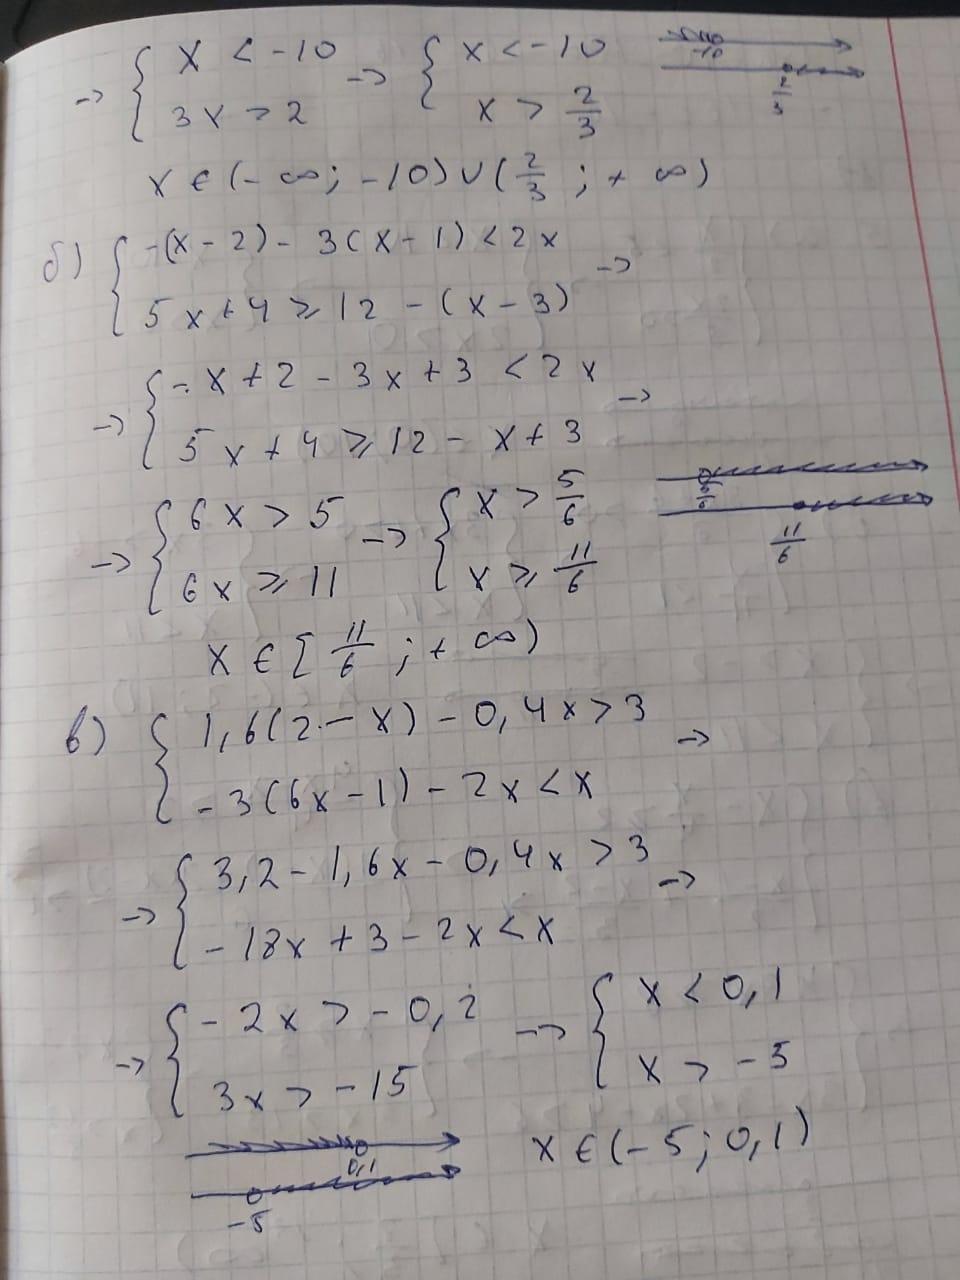 → { x < -10 → { x < -10 -10
3x > 2 x > 2/3 2/3
x ∈ (-∞; -10) ∪ (2/3; +∞)
б) { -(x - 2) - 3(x - 1) < 2x →
5x + 4 ⩾ 12 - (x - 3)
→ { - x + 2 - 3x + 3 < 2x →
5x + 4 ⩾ 12 - x + 3
→ { 6x > 5 → { x > 5/6 5/6
6x ⩾ 11 x ⩾ 11/6 11/6
x ∈ [11/6; +∞)
в) { 1,6(2 - x) - 0,4x > 3 →
-3(6x - 1) - 2x < x
→ { 3,2 - 1,6x - 0,4x > 3 →
- 18x + 3 - 2x < x
→ { - 2x > - 0,2 → { x < 0,1
3x > - 15 x > - 5
0,1 x ∈ (-5; 0,1)
-5